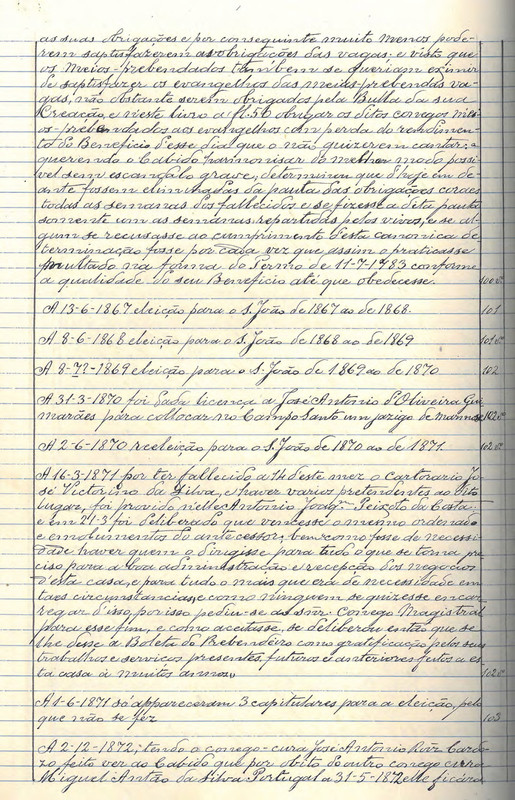 as suas obrigações e por conseguinte muito menos pode-
rem saptisfazerem as obrigações das vagas: e visto que
os Meios-prebendados tambem se queriam eximir
de saptisfazer os evangelhos das meias-prebendas va-
gas, não obstante serem obrigados pela Bulla da sua
Creação, e n'este livro a fl. 56 obrigar os ditos conegos mei-
os-prebendados aos evangelhos com perda do rendimen-
to do Beneficio d'esse dia que o não quizerem cantar:
querendo o Cabido harmonisar do melhor modo possi-
vel sem escandalo grave, determinou que d'hoje em de-
ante fossem eliminadas da pauta das obrigações coraes
todas as semanas dos fallecidos e se fizesse a dita pauta
somente com as semanas repartidas pelos vivos, e se al-
guem se recusasse ao cumprimento d'esta canonica de-
terminação fosse por cada vez que assim o praticasse
multado na forma do Termo de 11-7-1783 conforme
a qualidade do seu Beneficio até que obedecesse. 100 v.º
A 13-6-1867 eleição para o S. João de 1867 ao de 1868. 101
A 8-6-1868 eleição para o S. João de 1868 ao de 1869 101 v.º
A 8-12-1869 eleição para o S. João de 1869 ao de 1870 102
A 31-3-1870 foi dada licença a José Antonio d'Oliveira Gui-
marães para collocar no Campo Santo um jazigo de marmore 102 v.º
A 2-6-1870 reeleição para o S. João de 1870 ao de 1871. 102 v.º
A 16-3-1871 por ter fallecido a 14 deste mez o cartorario Jo-
sé Victorino da Silva, e haver varios pretendentes ao dito
lugar, foi provido nelle Antonio Joaq.m Peixoto da Costa:
e em 21-3 foi deliberado que vencesse o mesmo ordenado
e emolumentos do antecessor, bem como fosse de necessi-
dade haver quem o dirigisse para tudo o que se torna pre-
ciso para a boa administração e recepção dos negocios
d'esta casa, e para tudo o mais que era de necessidade em
taes circunstancias, e como ninguem se quizesse encar-
regar d'isso por isso pediu-se ao snr. Conego Magistral
para esse fim, e como aceitasse, se deliberou então que se
lhe desse a Boleta do Prebendeiro como gratificação pelos seus
trabalhos e serviços presentes, futuros e anteriores feitos a es-
ta casa à muitos annos. 102 v.º
A 1-6-1871 só appareceram 3 capitulares para a eleição, pelo
que não se fez 103
A 2-12-1872, tendo o conego-cura José Antonio Roiz Cardo-
zo feito ver ao Cabido que por obito do outro conego cura
Miguel Antão da Silva Portugal a 31-5-1872 elle ficára